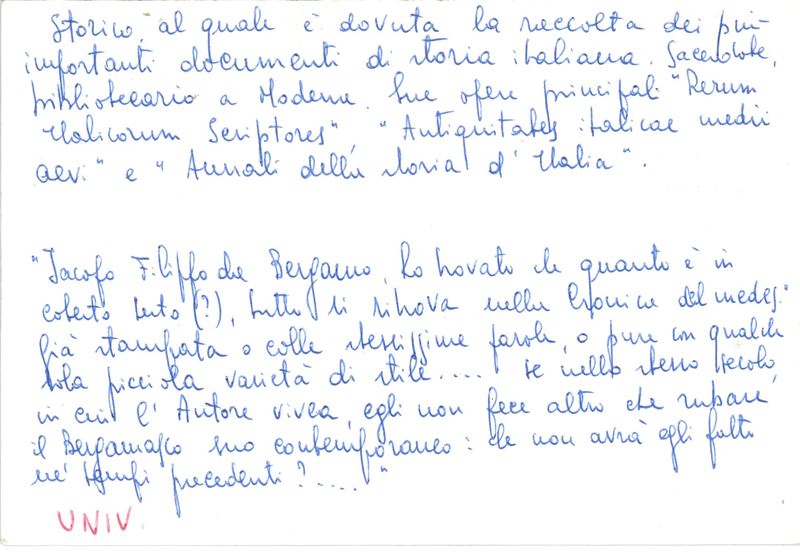 Storico, al quale è dovuta la raccolta dei più
importanti documenti di storia italiana. Sacerdote,
bibliotecario a Modena. Sue opere principali "Rerum
Italicorum Scriptores", "Antiquitates italicae medii
aevi" e "Annali della storia d'Italia".
"Jacopo Filippo da Bergamo, ho trovato che quanto è in
cotesto testo (?), tutto si ritrova nella Cronica del medes."
già stampata o colle stessissime parole, o pure con qualche
sola picciola varietà di stile..... se nello stesso secolo,
in cui l'Autore vivea, egli non fece altro che rubare
il Bergamasco suo contemporaneo: che non avrà egli fatto
ne' tempi precedenti?....."
UNIV.